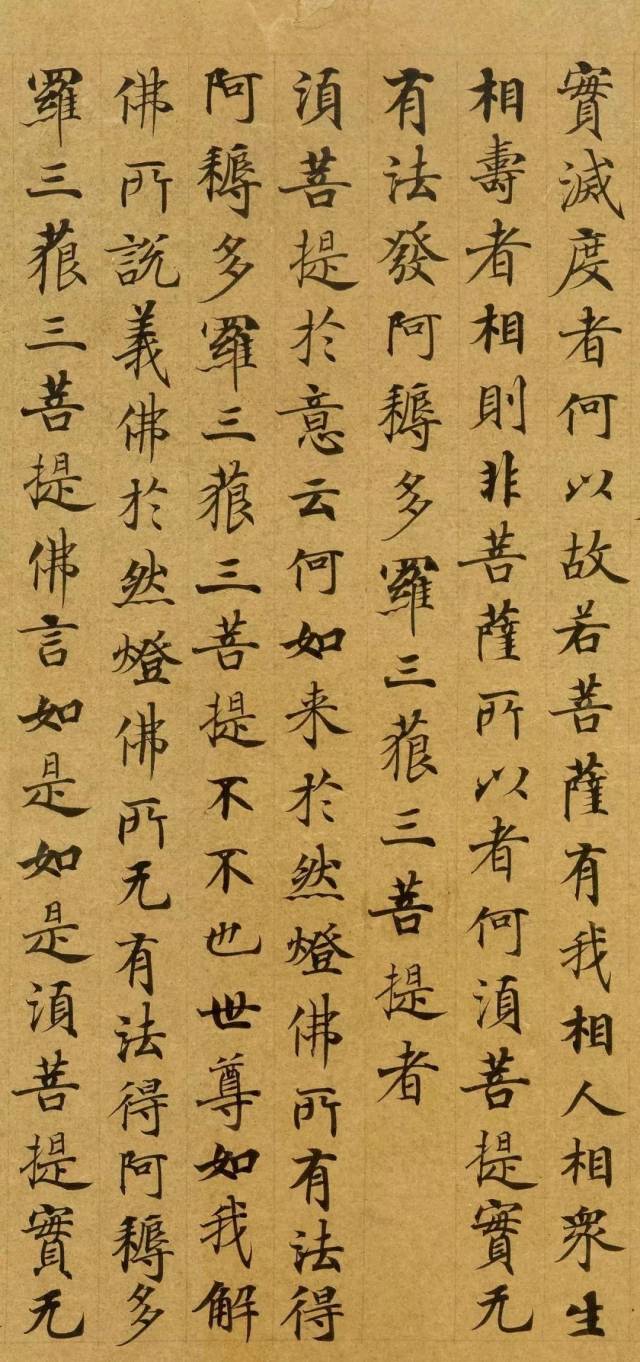 實滅度者何以故若菩薩有我相人相衆生
相壽者相則非菩薩所以者何須菩提實无
有法發阿耨多羅三藐三菩提者
須菩提於意云何如来於然燈佛所有法得
阿耨多羅三藐三菩提不不也世尊如我解
佛所說義佛於然燈佛所无有法得阿耨多
羅三藐三菩提佛言如是如是須菩提實无